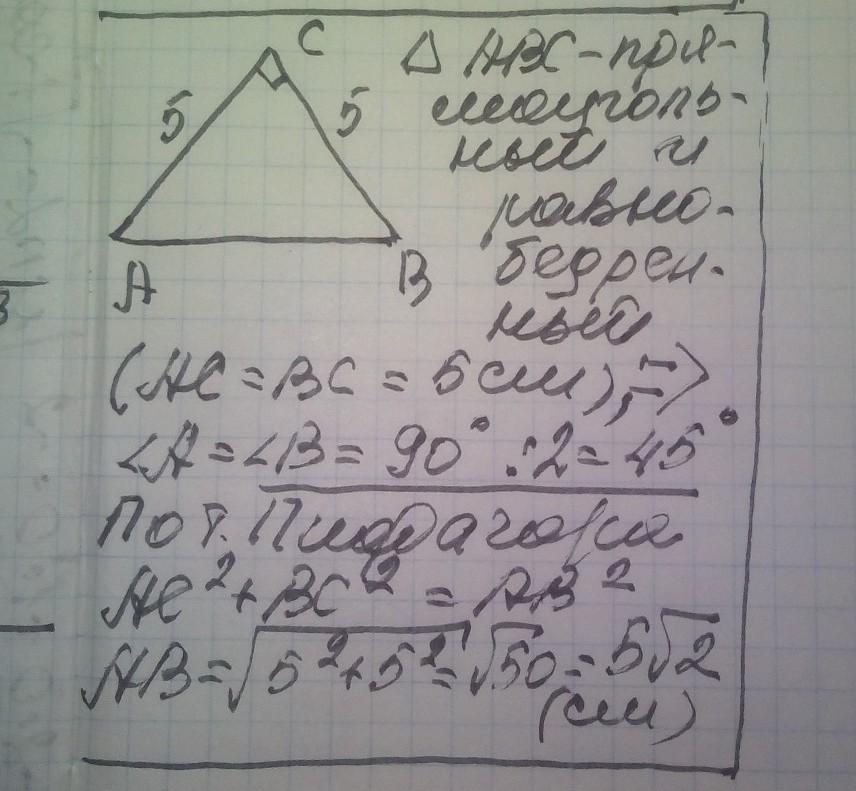 C
5
5
A
B
Δ ABC - пря-
моуголь-
ный и
равно-
бедрен-
ный
(AC = BC = 5 см), =>
∠A = ∠B = 90° : 2 = 45°
По т. Пифагора
AC² + BC² = AB²
AB = √5² + 5² = √50 = 5√2
(см)